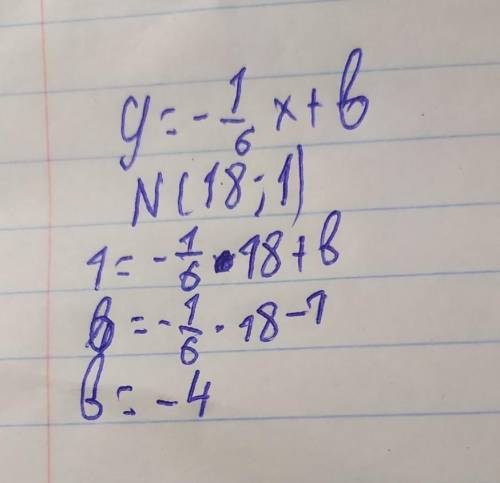 y = -1/6 x + b
N(18; 1)
1 = -1/6 · 18 + b
b = -1/6 · 18 - 1
b = -4